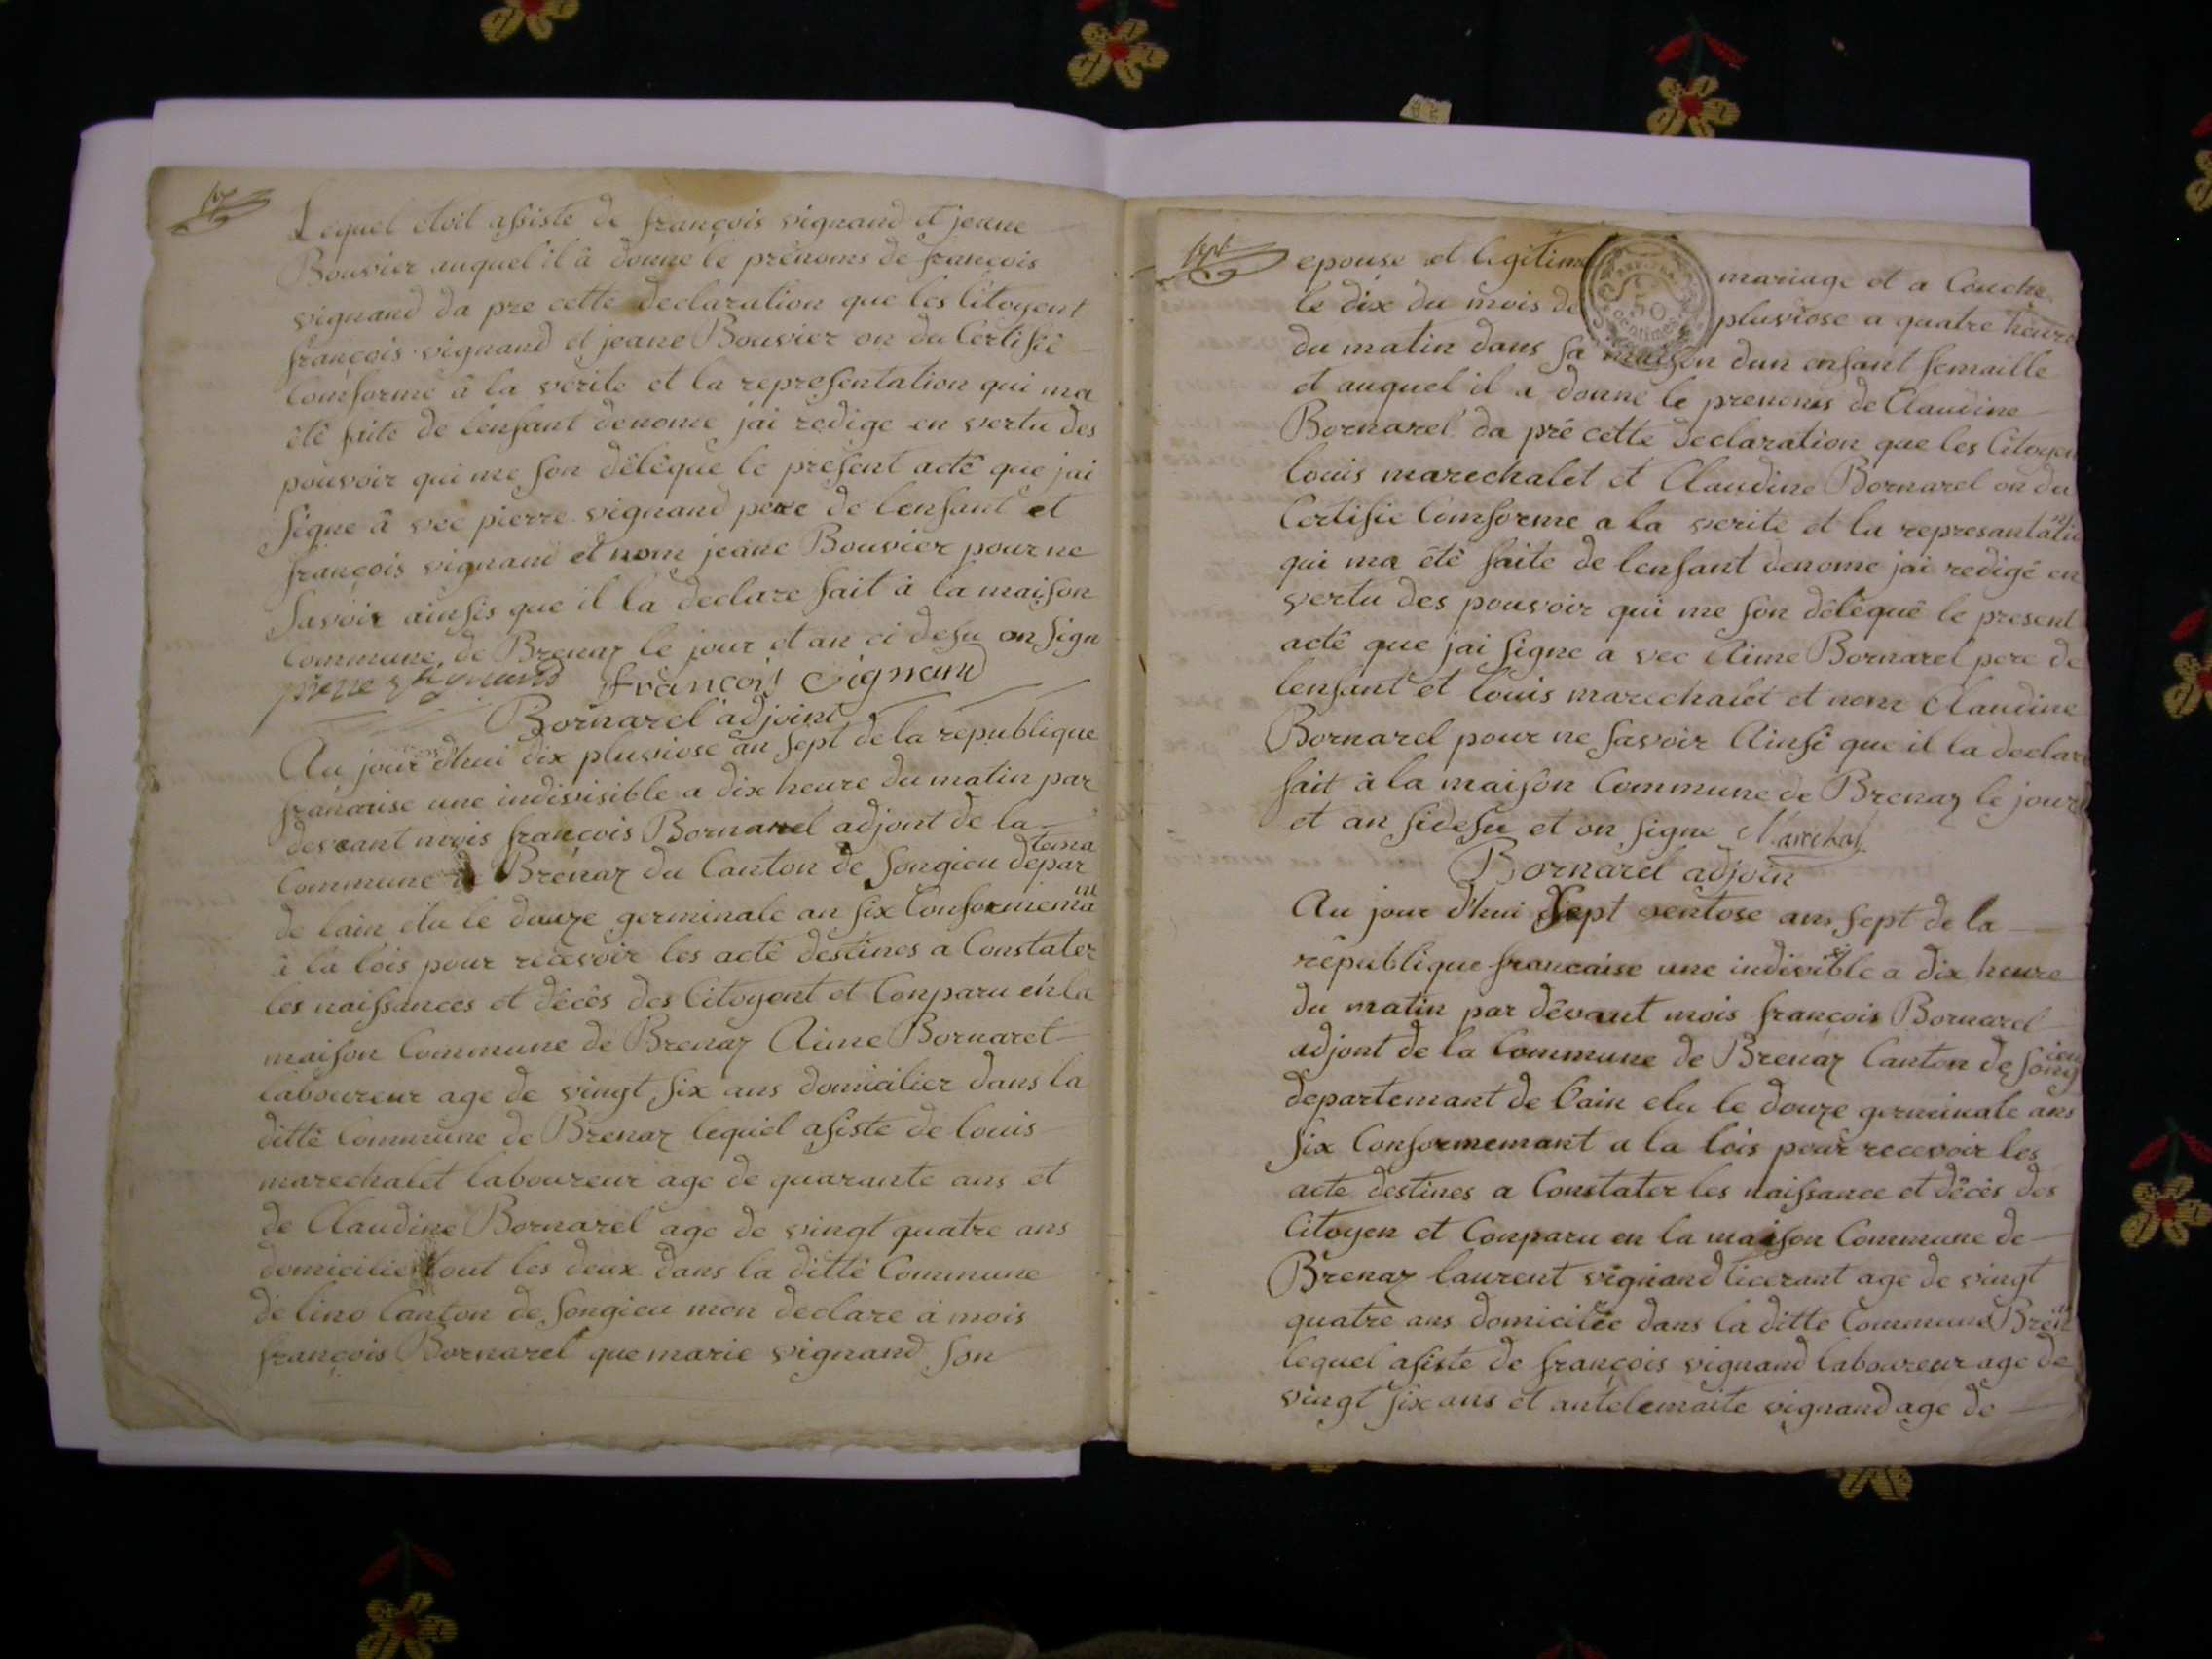 Lequel étoit assiste de françois vignand et jeane
Bouvier auquel il â donne le prénoms de françois
vignand da pre cette declaration que les Citoyent
françois vignand et jeane Bouvier on du Certifié
Comforme â la verite et la representation qui ma
été faite de lenfant denome jai redige en vertu des
pouvoir qui me son délégue le present acté que jai
signe â vec pierre vignand pere de lenfant et
françois vignand et nom jeane Bouvier pour ne
Savoir ainsis que il la declare fait â la maison
Commune de Brenaz le jour et an ci desu on sign
françois vignand
Bornarel adjoint
Au jour dhui dix pluviose an sept de la republique
francaise une indivisible a dix heure du matin par
devant mois françois Bornarel adjont de la
Commune de Brenaz du Canton de Songieu depar tema
de lain élu le douze germinale an six Conformema nt
à la lois pour recevoir les acté destines a Constater
les naissances et décés des Citoyent et Conparu en la
maison Commune de Brenaz Aime Bornarel
laboureur age de vingt six ans domicilier dans la
ditté Commune de Brenaz lequel asiste de louis
marechalet laboureur age de quarante ans et
de Claudine Bornarel age de vingt quatre ans
domicilie tout les deux dans la ditté Commune
de lino Canton de Songieu mon declare à mois
françois Bornarel que marie vignand son
sept
epouse et legitime mariage et a Couche
le dix du mois de pluviose a quatre heure
50
centimes
du matin dans sa maison dun enfant femaille
et auquel il a donne le prenoms de Claudine
Bornarel da pré cette declaration que les Citoyen
louis marechalet et Claudine Bornarel on du
Certifie Comforme a la verite et la represantatio n
qui ma été faite de lenfant denome jai redigé en
vertu des pouvoir qui me son déléqué le present
acté que jai signe a vec Aime Bornarel pere de
lenfant et louis marechalet et nom Claudine
Bornarel pour ne savoir Ainsi que il la declare
fait à la maison Commune de Brenaz le jour
et an sidesu et on signe Marechal
Bornarel adjoin
Au jour d'hui Sept ventose ans sept de la
republique francaise une indivisible a dix heure
du matin par dévant mois françois Bornarel
adjont de la Commune de Brenaz Canton de Song ieu
departemant de lain elu le douze germinale ans
six Conformemant a la lois pour recevoir les
acte destines a Constater les naissance et décés des
Citoyen et Conparu en la maison Commune de
Brenaz laurent vignand age de vingt
quatre ans domiciliée dans la ditte Commune Bren az
lequel asiste de françois vignand laboureur age de
vingt six ans et antelemaite vignand age de